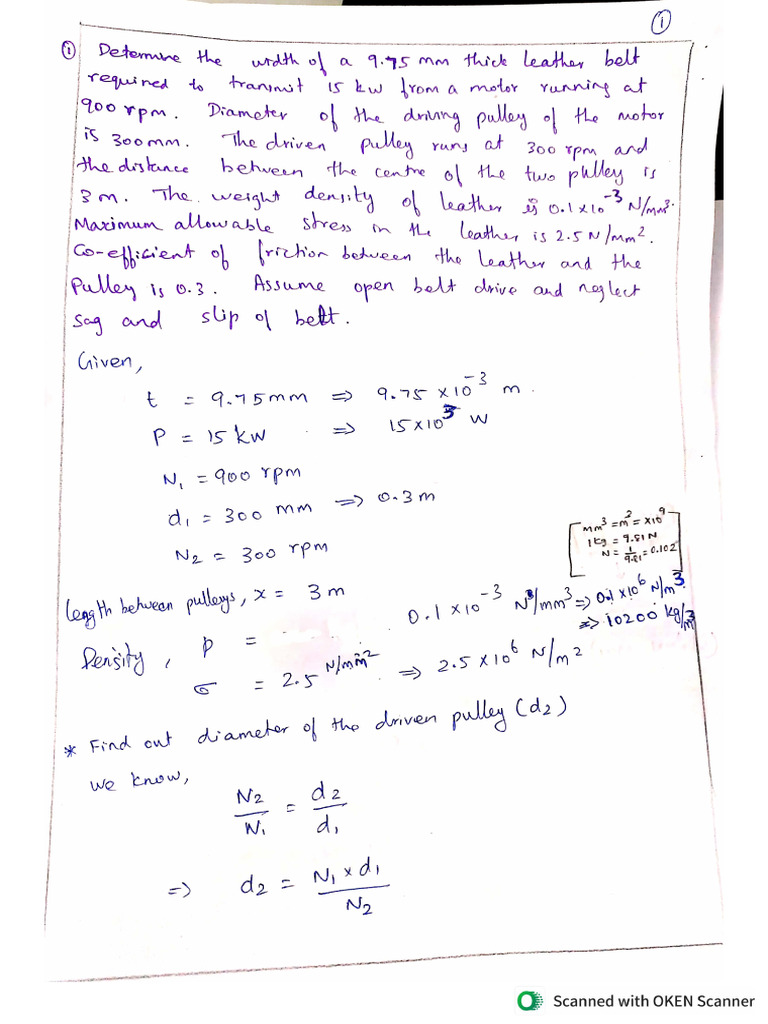 ①
① Determine the width of a 9.75 mm thick leather belt
required to transmit 15 kW from a motor running at
900 rpm. Diameter of the driving pulley of the motor
is 300mm. The driven pulley runs at 300 rpm and
the distance between the centre of the two pulley is
3 m. The weight density of leather is 0.1×10⁻³ N/mm³.
Maximum allowable stress in the leather is 2.5 N/mm².
Co-efficient of friction between the leather and the
pulley is 0.3. Assume open belt drive and neglect
sag and slip of belt.
Given,
t = 9.75mm ⇒ 9.75 ×10⁻³ m.
P = 15 kW ⇒ 15×10³ W
N₁ = 900 rpm
d₁ = 300 mm ⇒ 0.3m
N₂ = 300 rpm
[mm³ = m² = ×10⁹
1kg = 9.81 N
N = 1/9.81 = 0.102]
length between pulleys, x = 3 m
Density, ρ = 0.1 × 10⁻³ N/mm³ ⇒ 0.1 × 10⁶ N/m³
⇒ 10200 kg/m³
σ = 2.5 N/mm² ⇒ 2.5 × 10⁶ N/m²
* Find out diameter of the driven pulley (d₂)
we know,
N₂/N₁ = d₂/d₁
⇒ d₂ = N₁ × d₁/N₂
Scanned with OKEN Scanner